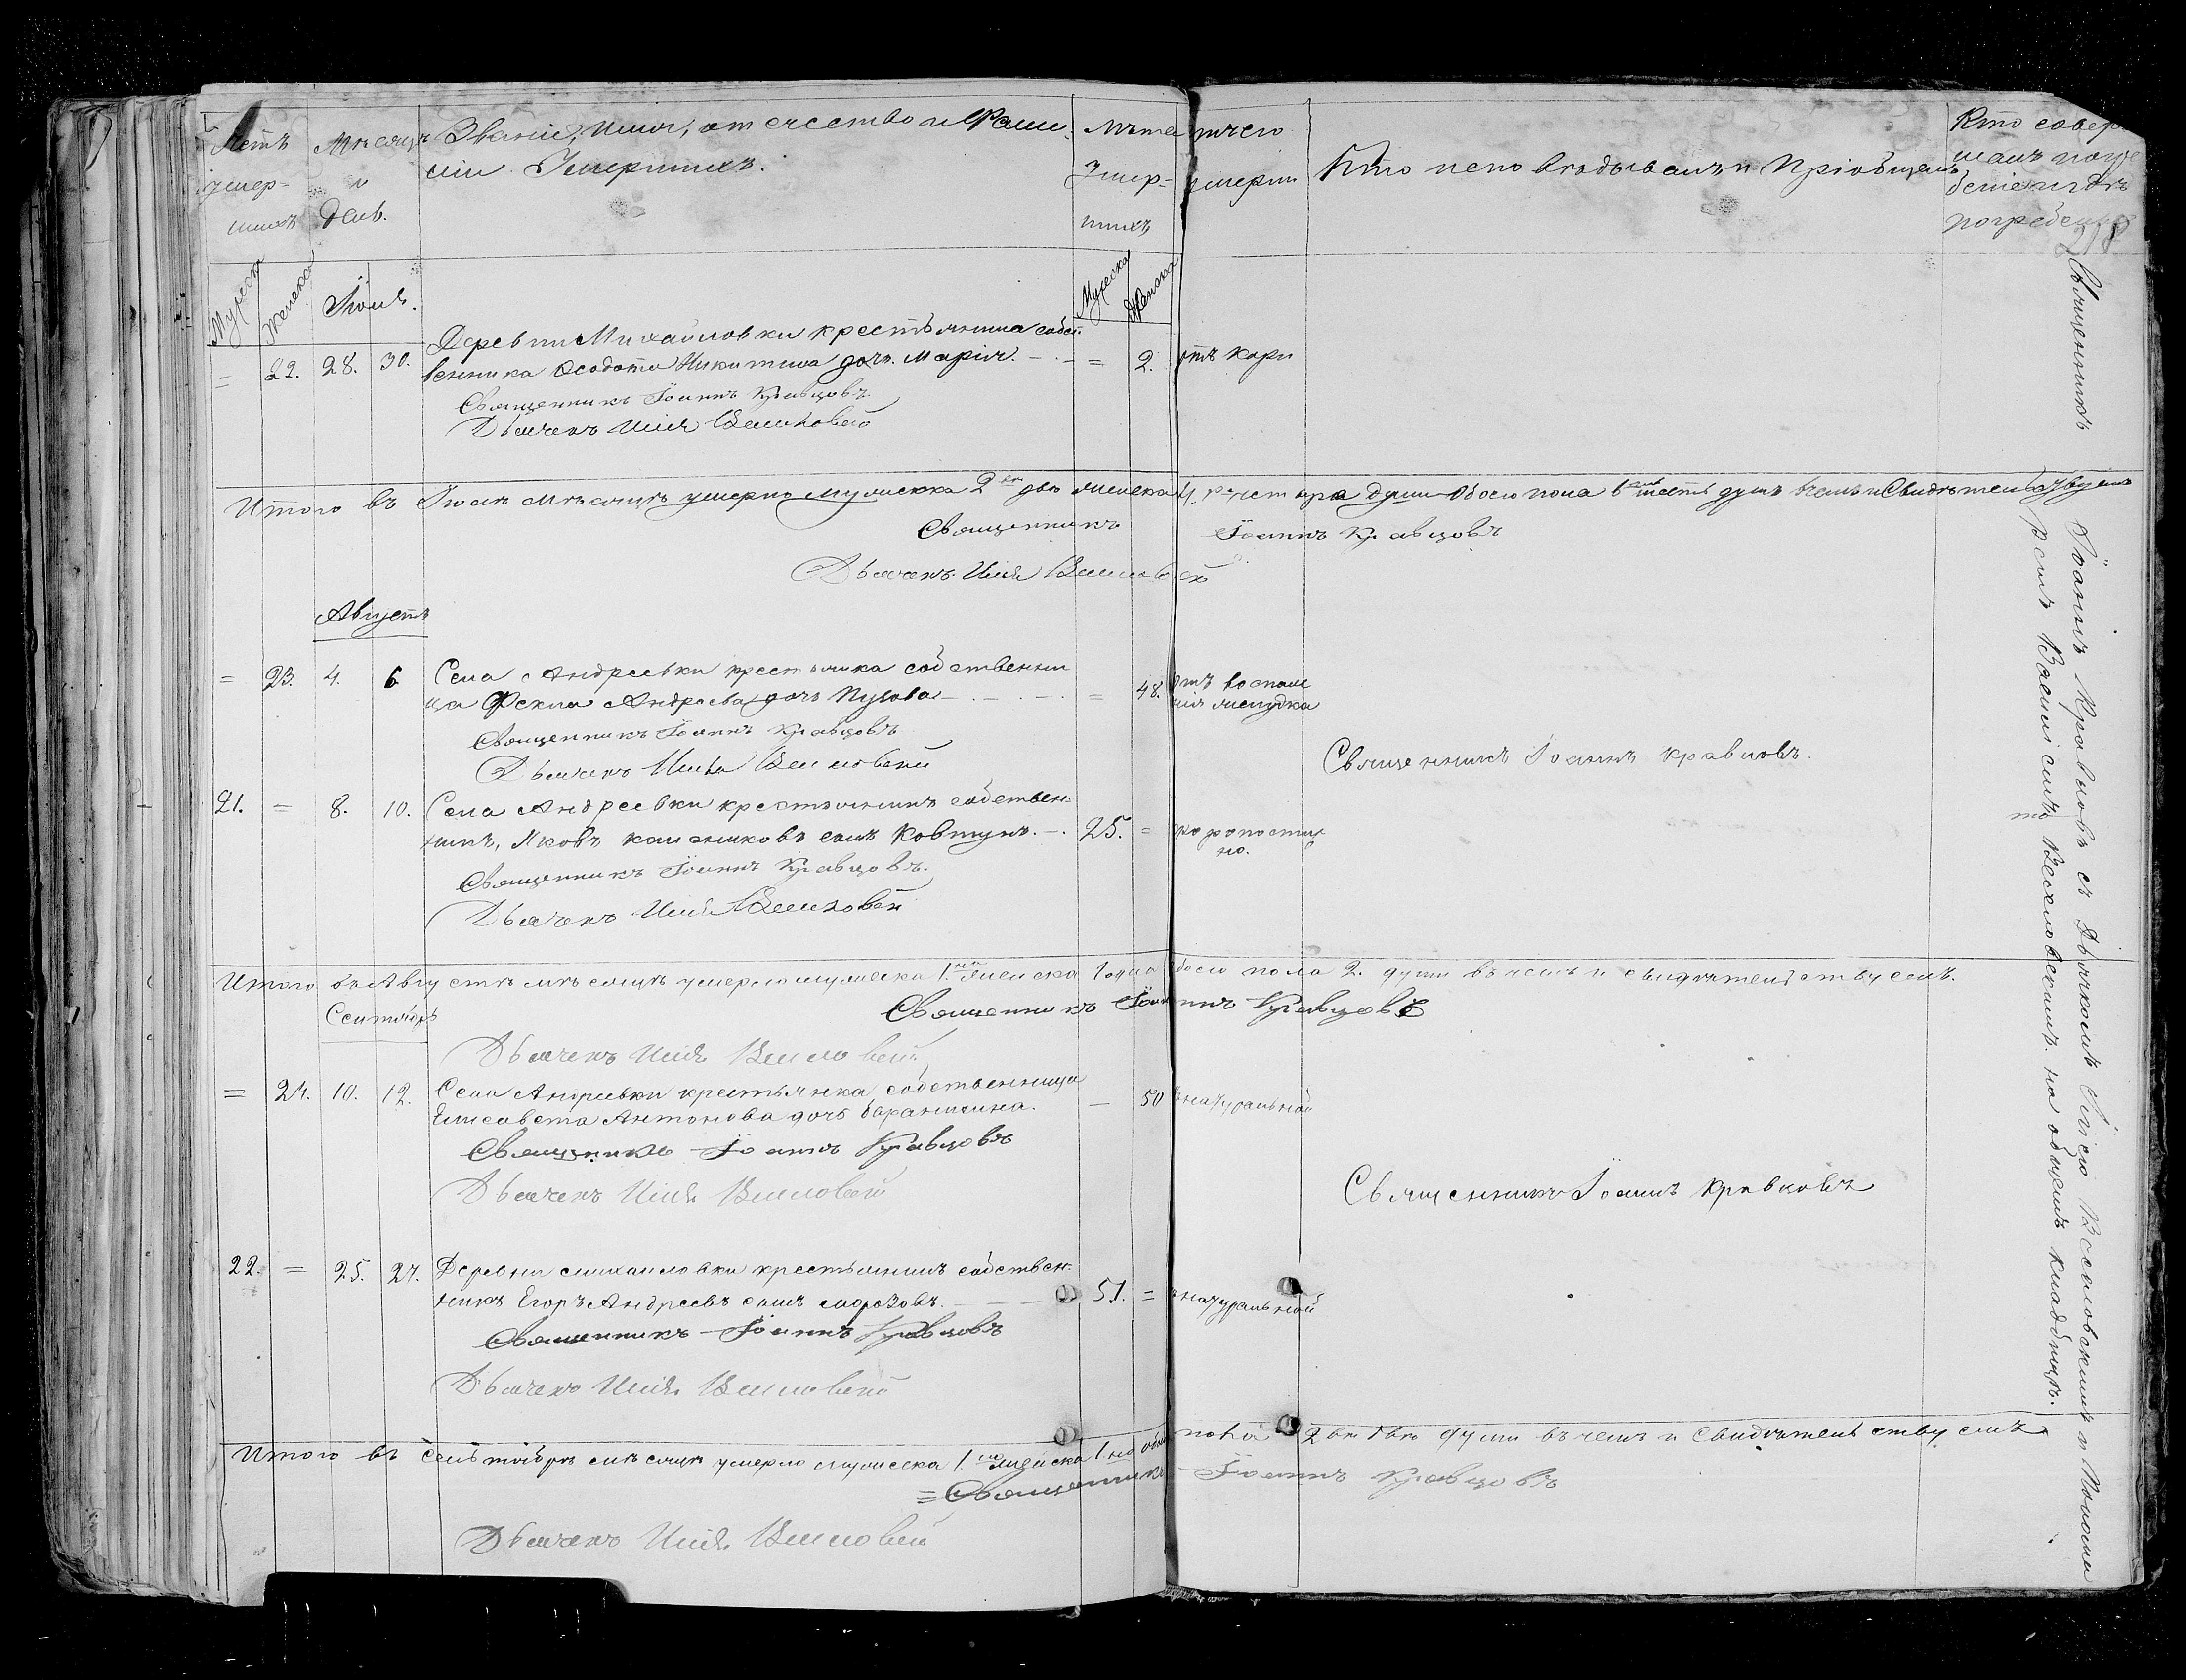 Счетъ умер- шихъ
Мѣсяцъ и день.
Званіе, имя, отчество и фами-
лія Умершихъ.
Лѣта Умер- шихъ
отъ чего умерли
Кто исповѣдывалъ и Пріобщалъ
Кто совер
шалъ погре
беніе и гдѣ
погребены
218
Мужеска Женска Іюль. Мужеска Женска
Деревни Михайловки крестьянина собст-
= 22. 28. 30. венника Ѳеодота Никитина дочь Марія. = 2. отъ кори
Священникъ Іоаннъ Кравцовъ.
Дьячекъ Илія
Итого въ Іюлѣ мѣсяцѣ умерло мужеска 2 два женска 4 четыре души Обоего пола 6 шесть душъ въ чемъ и Свидѣтельствуемъ
Священникъ Іоаннъ Кравцовъ
Дьячекъ Илія
Августъ
= 23. 4. 6 Села Андреевки крестьянка собственни
ца Фекла Андреева дочь = 48. Отъ воспале
нія желудка
Священникъ Іоаннъ Кравцовъ
Дьячекъ Илія
Священникъ Іоаннъ Кравцовъ.
21. = 8. 10. Села Андреевки крестьянинъ собствен-
никъ, Яковъ сынъ Ковтунъ. 25. = скоропостиж
но.
Священникъ Іоаннъ Кравцовъ.
Дьячекъ Илія
Итого въ Августѣ мѣсяцѣ умерло мужеска 1. женска 1 одна обоего пола 2. души въ чемъ и свидѣтельствуемъ.
Сентябрь
Священникъ Іоаннъ Кравцовъ
Дьячекъ Илія
= 24. 10. 12. Села Андреевки крестьянка, собственница
Елисавета Антонова дочь Бараничина. — 50 натуральной
Священникъ Іоаннъ Кравцовъ
Дьячекъ Илія
Священникъ Іоаннъ Кравцовъ
22. = 25. 27. Деревни Михайловки крестьянинъ собствен-
никъ Егоръ Андреевъ сынъ Морозовъ. 51. = натуральной
Священникъ Іоаннъ Кравцовъ
Дьячекъ Илія
Итого въ Сентябрѣ мѣсяцѣ умерло мужеска 1. женска 1 но обоего пола 2 двѣ души въ чемъ и Свидѣтельствуемъ
Священникъ Іоаннъ Кравцовъ
Дьячекъ Илія
Священникъ Іоаннъ Кравцовъ съ Дьячкомъ Иліею Веселовскимъ и Поном
Василіемъ Веселовскимъ. на общемъ кладбищѣ.